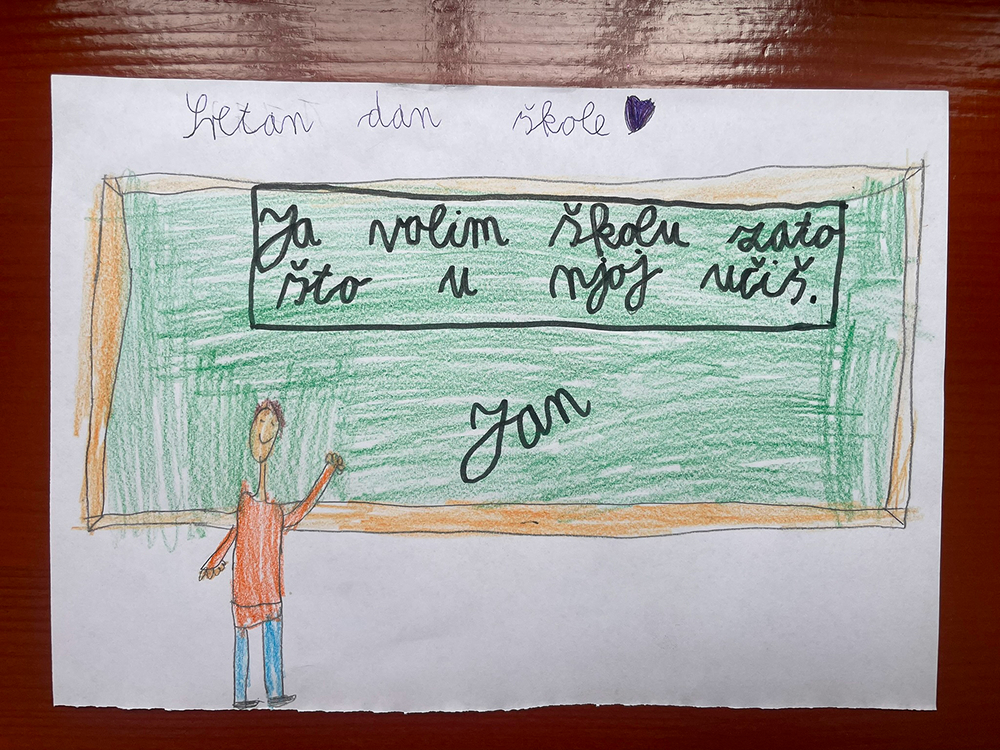 Sretan dan škole
Ja volim školu zato
što u njoj učiš.
Jan